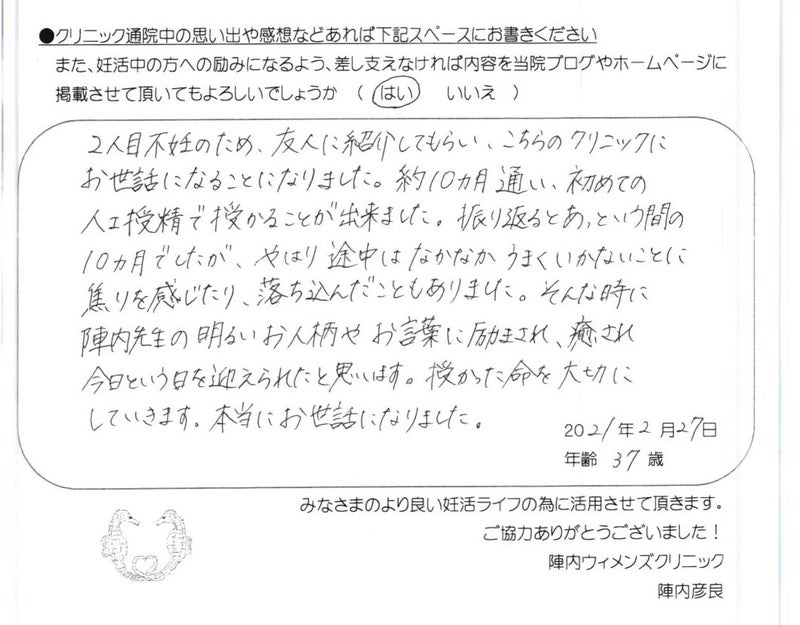 ●クリニック通院中の思い出や感想などあれば下記スペースにお書きください
また、妊活中の方への励みになるよう、差し支えなければ内容を当院ブログやホームページに
掲載させて頂いてもよろしいでしょうか （ はい いいえ ）
2人目不妊のため、友人に紹介してもらい、こちらのクリニックに
お世話になることになりました。約10カ月通い、初めての
人工授精で授かることが出来ました。振り返るとあっという間の
10カ月でしたが、やはり途中はなかなかうまくいかないことに
焦りを感じたり、落ち込んだこともありました。そんな時に
陣内先生の明るいお人柄やお言葉に励まされ、癒され
今日という日を迎えられたと思います。授かった命を大切に
していきます。本当にお世話になりました。
2021年2月27日
年齢 37歳
みなさまのより良い妊活ライフの為に活用させて頂きます。
ご協力ありがとうございました！
陣内ウィメンズクリニック
陣内彦良